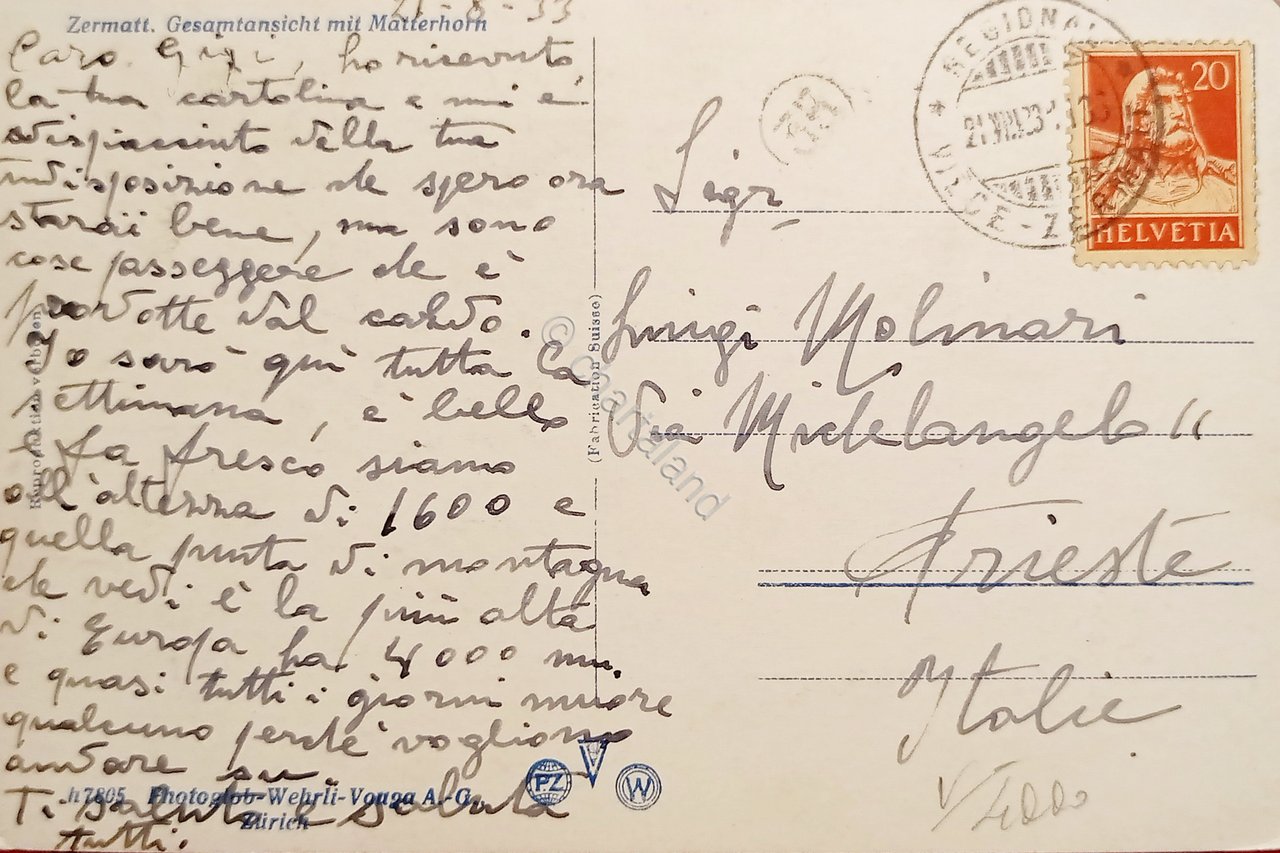 21-8-33
Zermatt. Gesamtansicht mit Matterhorn
Caro Gigi, ho ricevuto
la tua cartolina e mi è
dispiaciuto della tua
indisposizione che spero ora
starai bene, ma sono
cose passeggere che è
prodotte dal caldo.
Io sarò quì tutta la
settimana, è bello
e fa fresco siamo
all'altezza di 1600 e
quella punta di montagna
che vedi è la più alta
di Europa ha 4000 m.
e quasi tutti i giorni muore
qualcuno perchè vogliono
andare su.
Ti saluto e saluta
tutti.
h 7805 Photoglob-Wehrli-Vouga A.-G.
Zürich
Reproduktion vorbehalten
(Fabrication Suisse)
PZ
V
W
© chartaland
35
REGIONAL
VIÈGE-ZERMATT
21.VIII.33
20
HELVETIA
Sigr
Luigi Molinari
Via Michelangelo "
Trieste
Italie